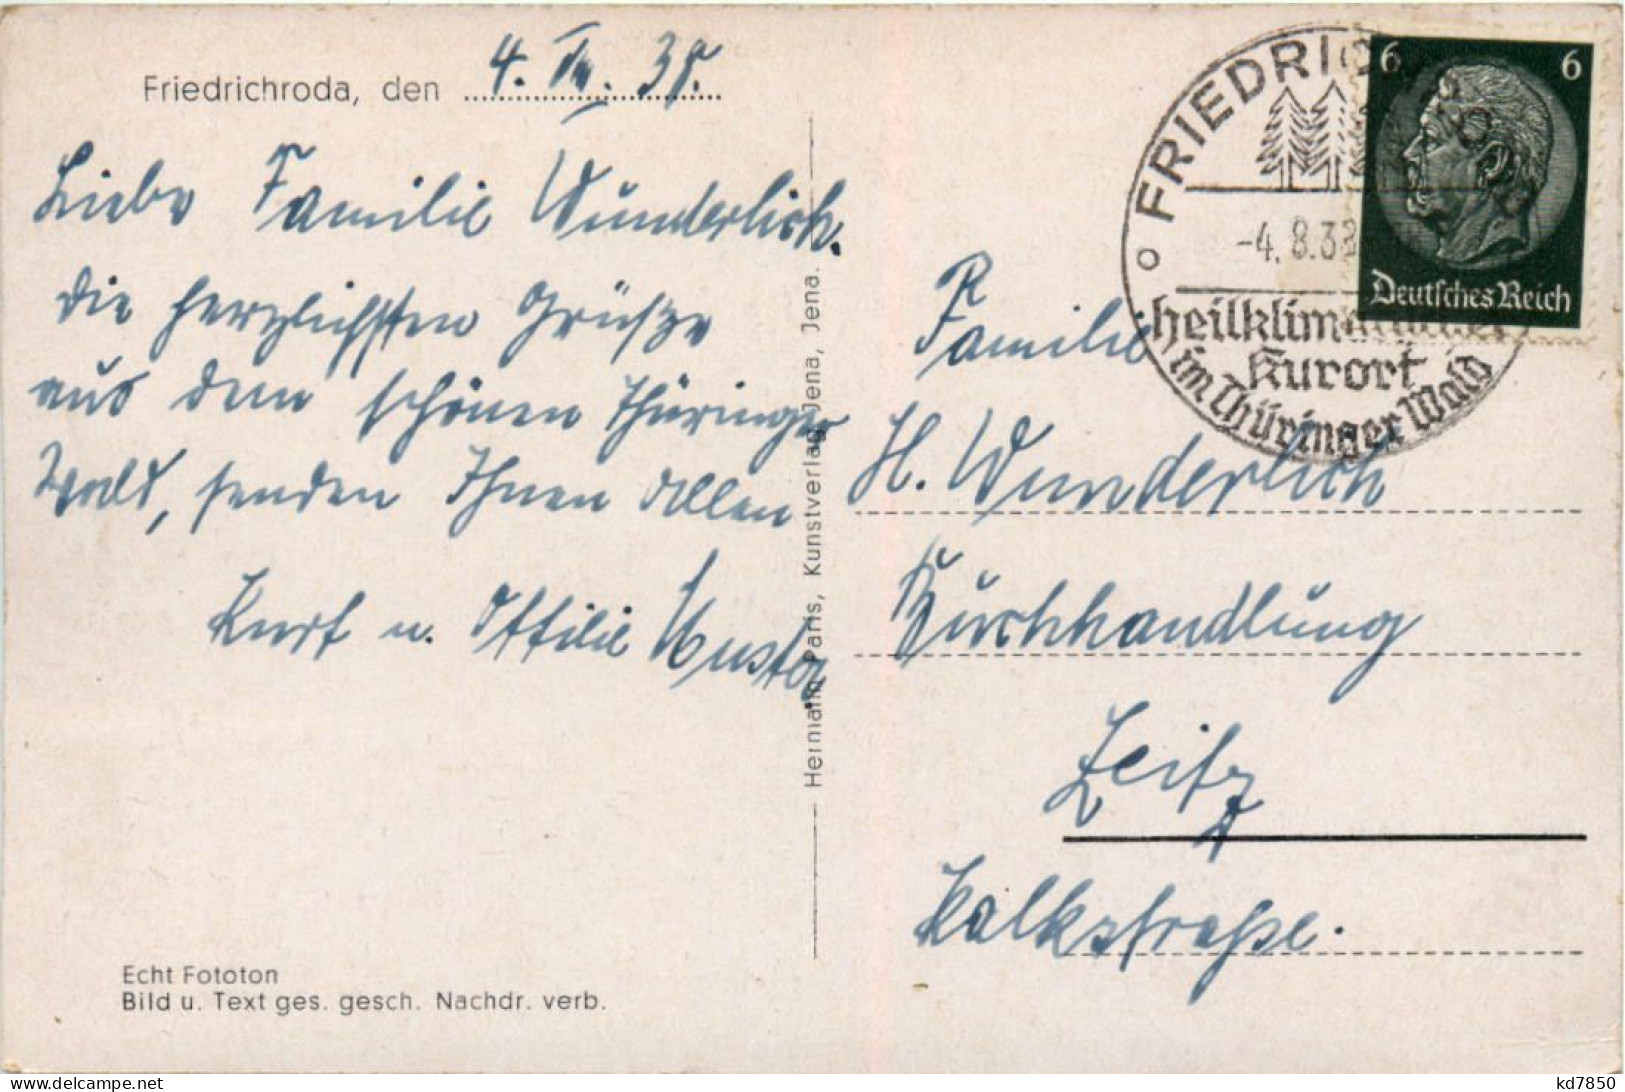 Friedrichroda, den 4. VIII. 38.
Liebe Familie Wunderlich.
Die herzlichsten Grüße
aus dem schönen Thüringer
Wald, senden Ihnen Allen
Kurt u. Ottilie
Echt Fototon
Bild u. Text ges. gesch. Nachdr. verb.
Hermann Paris, Kunstverlag Jena, Jena.
FRIEDRIC
-4.8.38
heilklimatischer
Kurort
im Thüringer Wald
6 6
Deutsches Reich
Familie
H. Wunderlich
Buchhandlung
Zeitz
Kalkstraße.
kd7850